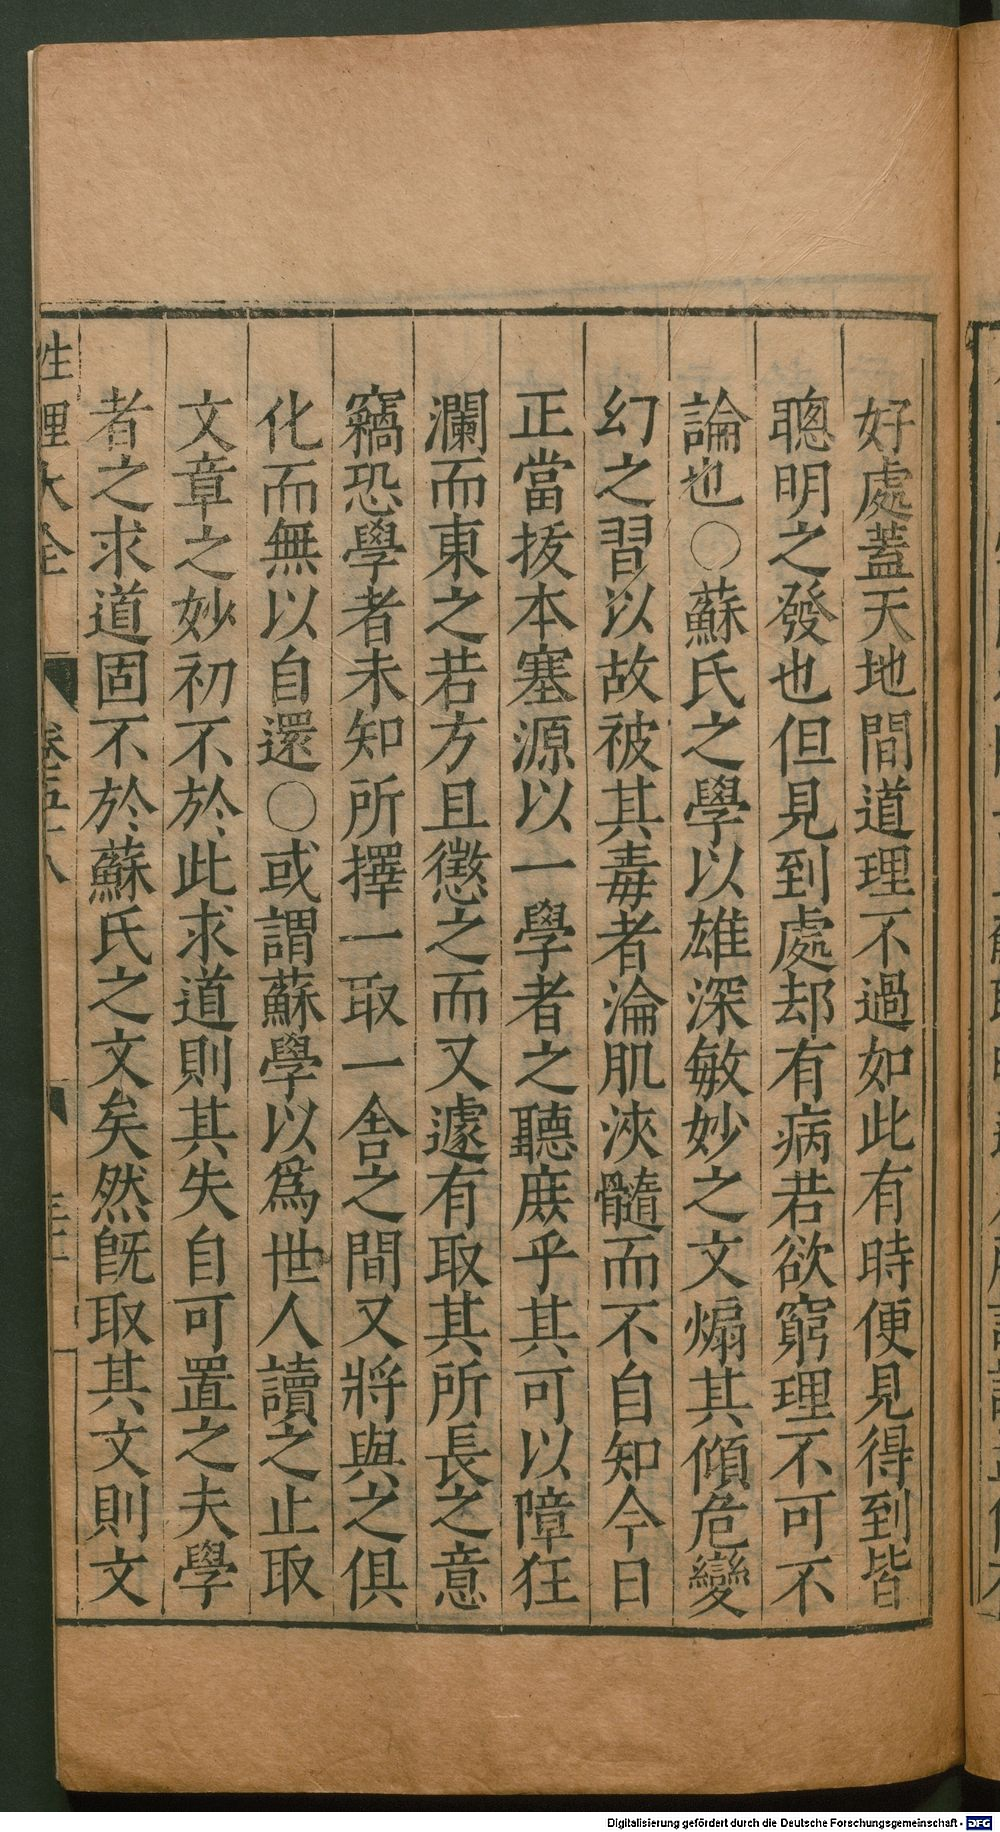 好處蓋天地間道理不過如此有時便見得到皆
聰明之發也但見到處却有病若欲窮理不可不
論也○蘇氏之學以雄深敏妙之文煽其傾危變
幻之習以故被其毒者淪肌浹髓而不自知今日
正當拔本塞源以一學者之聽庶乎其可以障狂
瀾而東之若方且懲之而又遽有取其所長之意
竊恐學者未知所擇一取一舍之間又將與之俱
化而無以自還○或謂蘇學以爲世人讀之止取
文章之妙初不於此求道則其失自可置之夫學
者之求道固不於蘇氏之文矣然旣取其文則文
性理大全 卷五十八
Digitalisierung gefördert durch die Deutsche Forschungsgemeinschaft - DFG